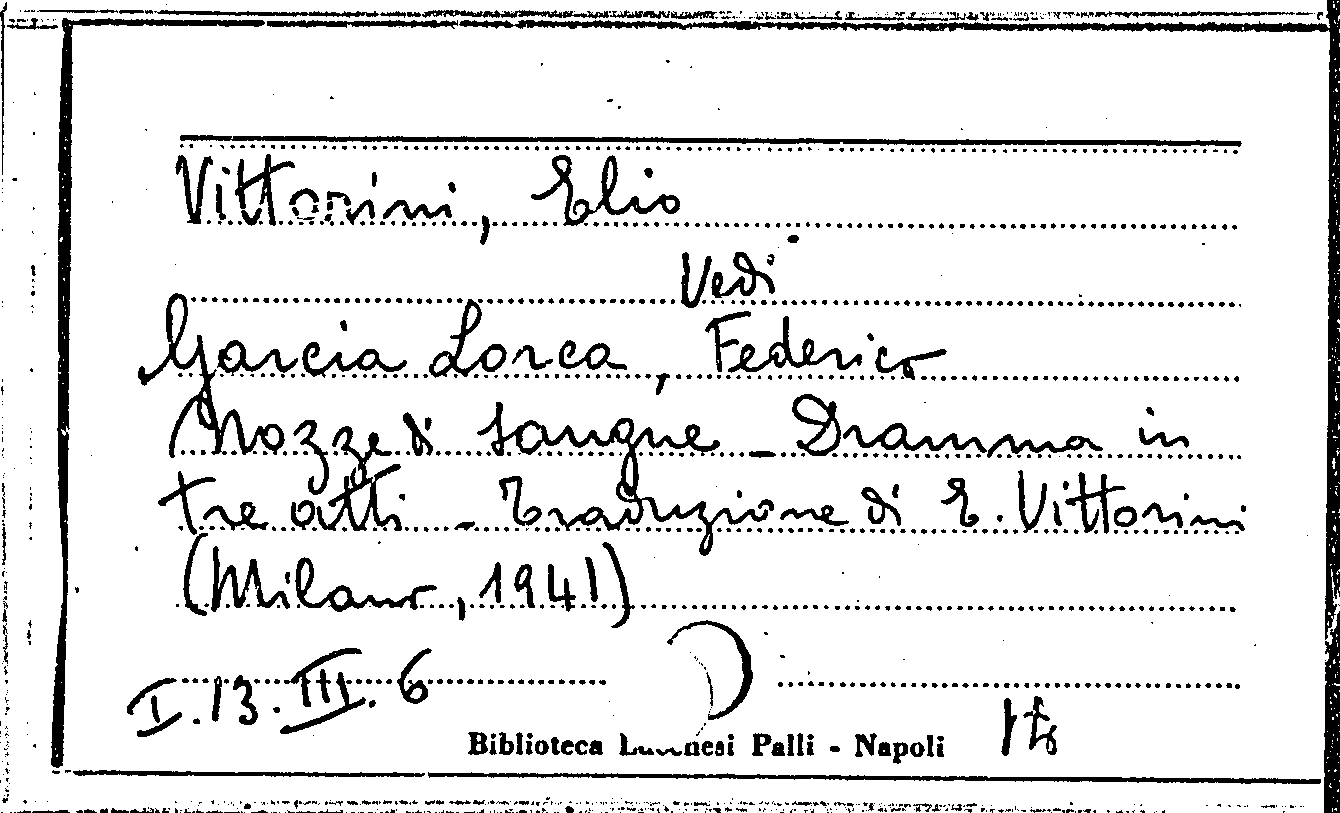 Vittorini, Elio
Vedi
Garcia Lorca, Federico
Nozze di sangue - Dramma in
tre atti - Traduzione di E. Vittorini
(Milano, 1941)
I.13.III.6
Biblioteca Palli - Napoli